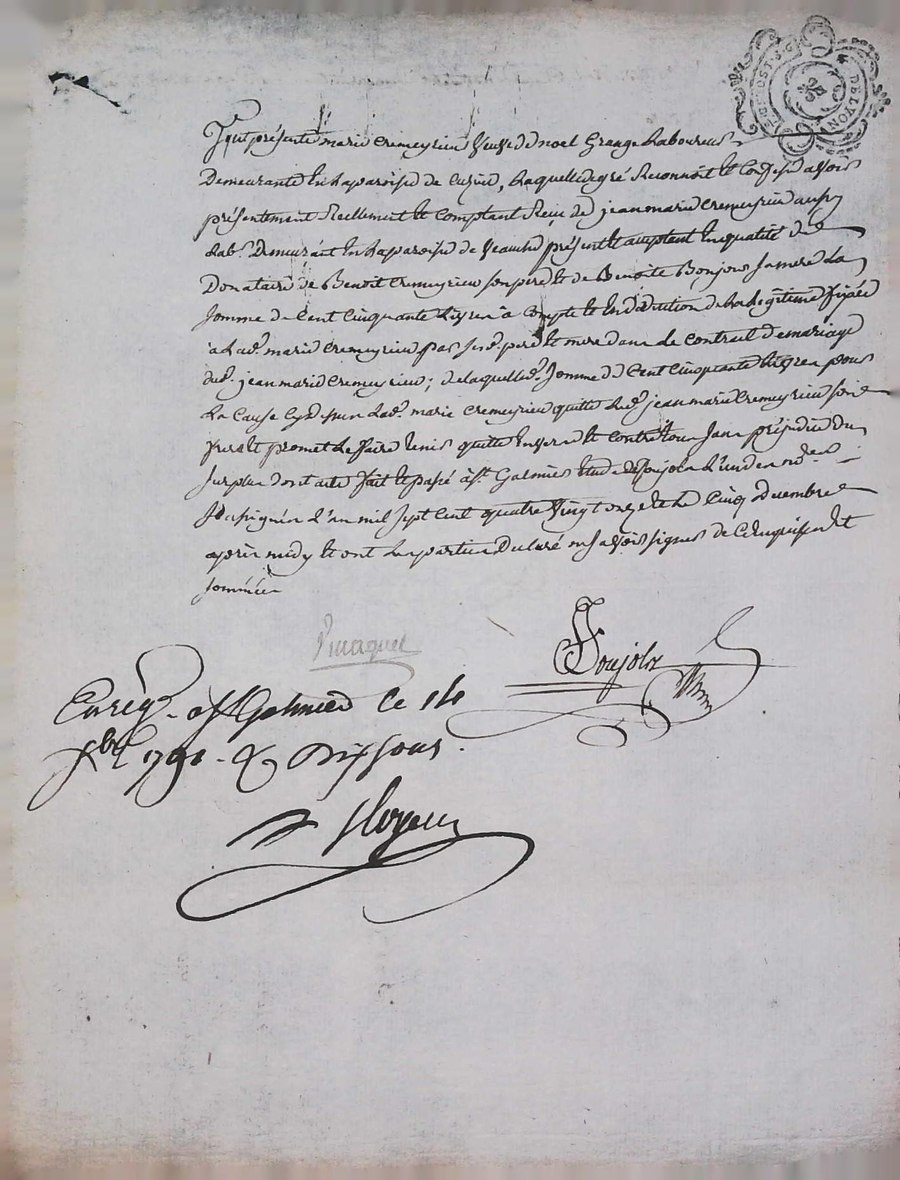 DE LYON
fut présente marie Cremeyrieu Veuve de noel Grange Laboureur
Demeurante En la paroisse de Curieu, Laquelle de gré Reconnoit et Confesse avoir
présentement Reellement et Comptant Reçu de jean marie Cremeyrieu aussy
Lab.r Demeurant En la paroisse de Veauche présent et acceptant En qualité de
Donataire de Benoit Cremeyrieu son pere et de Benoite Bonjour sa mere La
somme de Cent Cinquante Livres à Compte et En Déduction de la Légitime fixée
a lad.e marie Cremeyrieu par ses d. pere et mere dans le Contrat de mariage
dud. jean marie Cremeyrieu ; de laquelle d. somme de Cent Cinquante Livres pour
La Cause Cy dessus Lad.e marie Cremeyrieu quitte Led. jean marie Cremeyrieu son
frere et promet Le faire tenir quitte Envers et Contre tous sans préjudice du
surplus dont acte fait et passé à S.t Galmier Etude de poujolx L'un des no.res
soussignés L'an mil sept Cent quatre Vingt onze et le Cinq decembre
après midy et ont Les parties Declaré ne sçavoir signer de Ce Enquises et
sommées
Poujolx
Enreg.é à S.t Galmier Ce 14
Xbre 1791. & Dix sous.